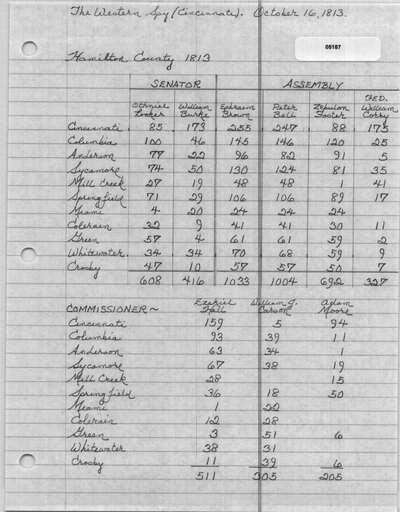 The Western Spy (Cincinnati). October 16, 1813.
05187
Hamilton County 1813
SENATOR ASSEMBLY
FED.
Othniel William Ephraim Peter Zebulon William
Looker Burke Brown Bell Foster Corry
Cincinnati 85 173 255 247 88 175
Columbia 100 46 145 146 120 25
Anderson 77 22 96 82 91 5
Sycamore 74 50 130 124 81 35
Mill Creek 27 19 48 48 1 41
Springfield 71 29 106 106 89 17
Miami 4 20 24 24 24
Colerain 32 9 41 41 30 11
Green 57 4 61 61 59 2
Whitewater 34 34 70 68 59 9
Crosby 47 10 57 57 50 7
608 416 1033 1004 692 327
Ezekiel William J. Adam
COMMISSIONER~ Hall Carson Moore
Cincinnati 159 5 94
Columbia 93 39 11
Anderson 63 34 1
Sycamore 67 38 19
Mill Creek 28 15
Springfield 36 18 50
Miami 1 22
Colerain 12 28
Green 3 51 6
Whitewater 38 31
Crosby 11 39 6
511 305 205